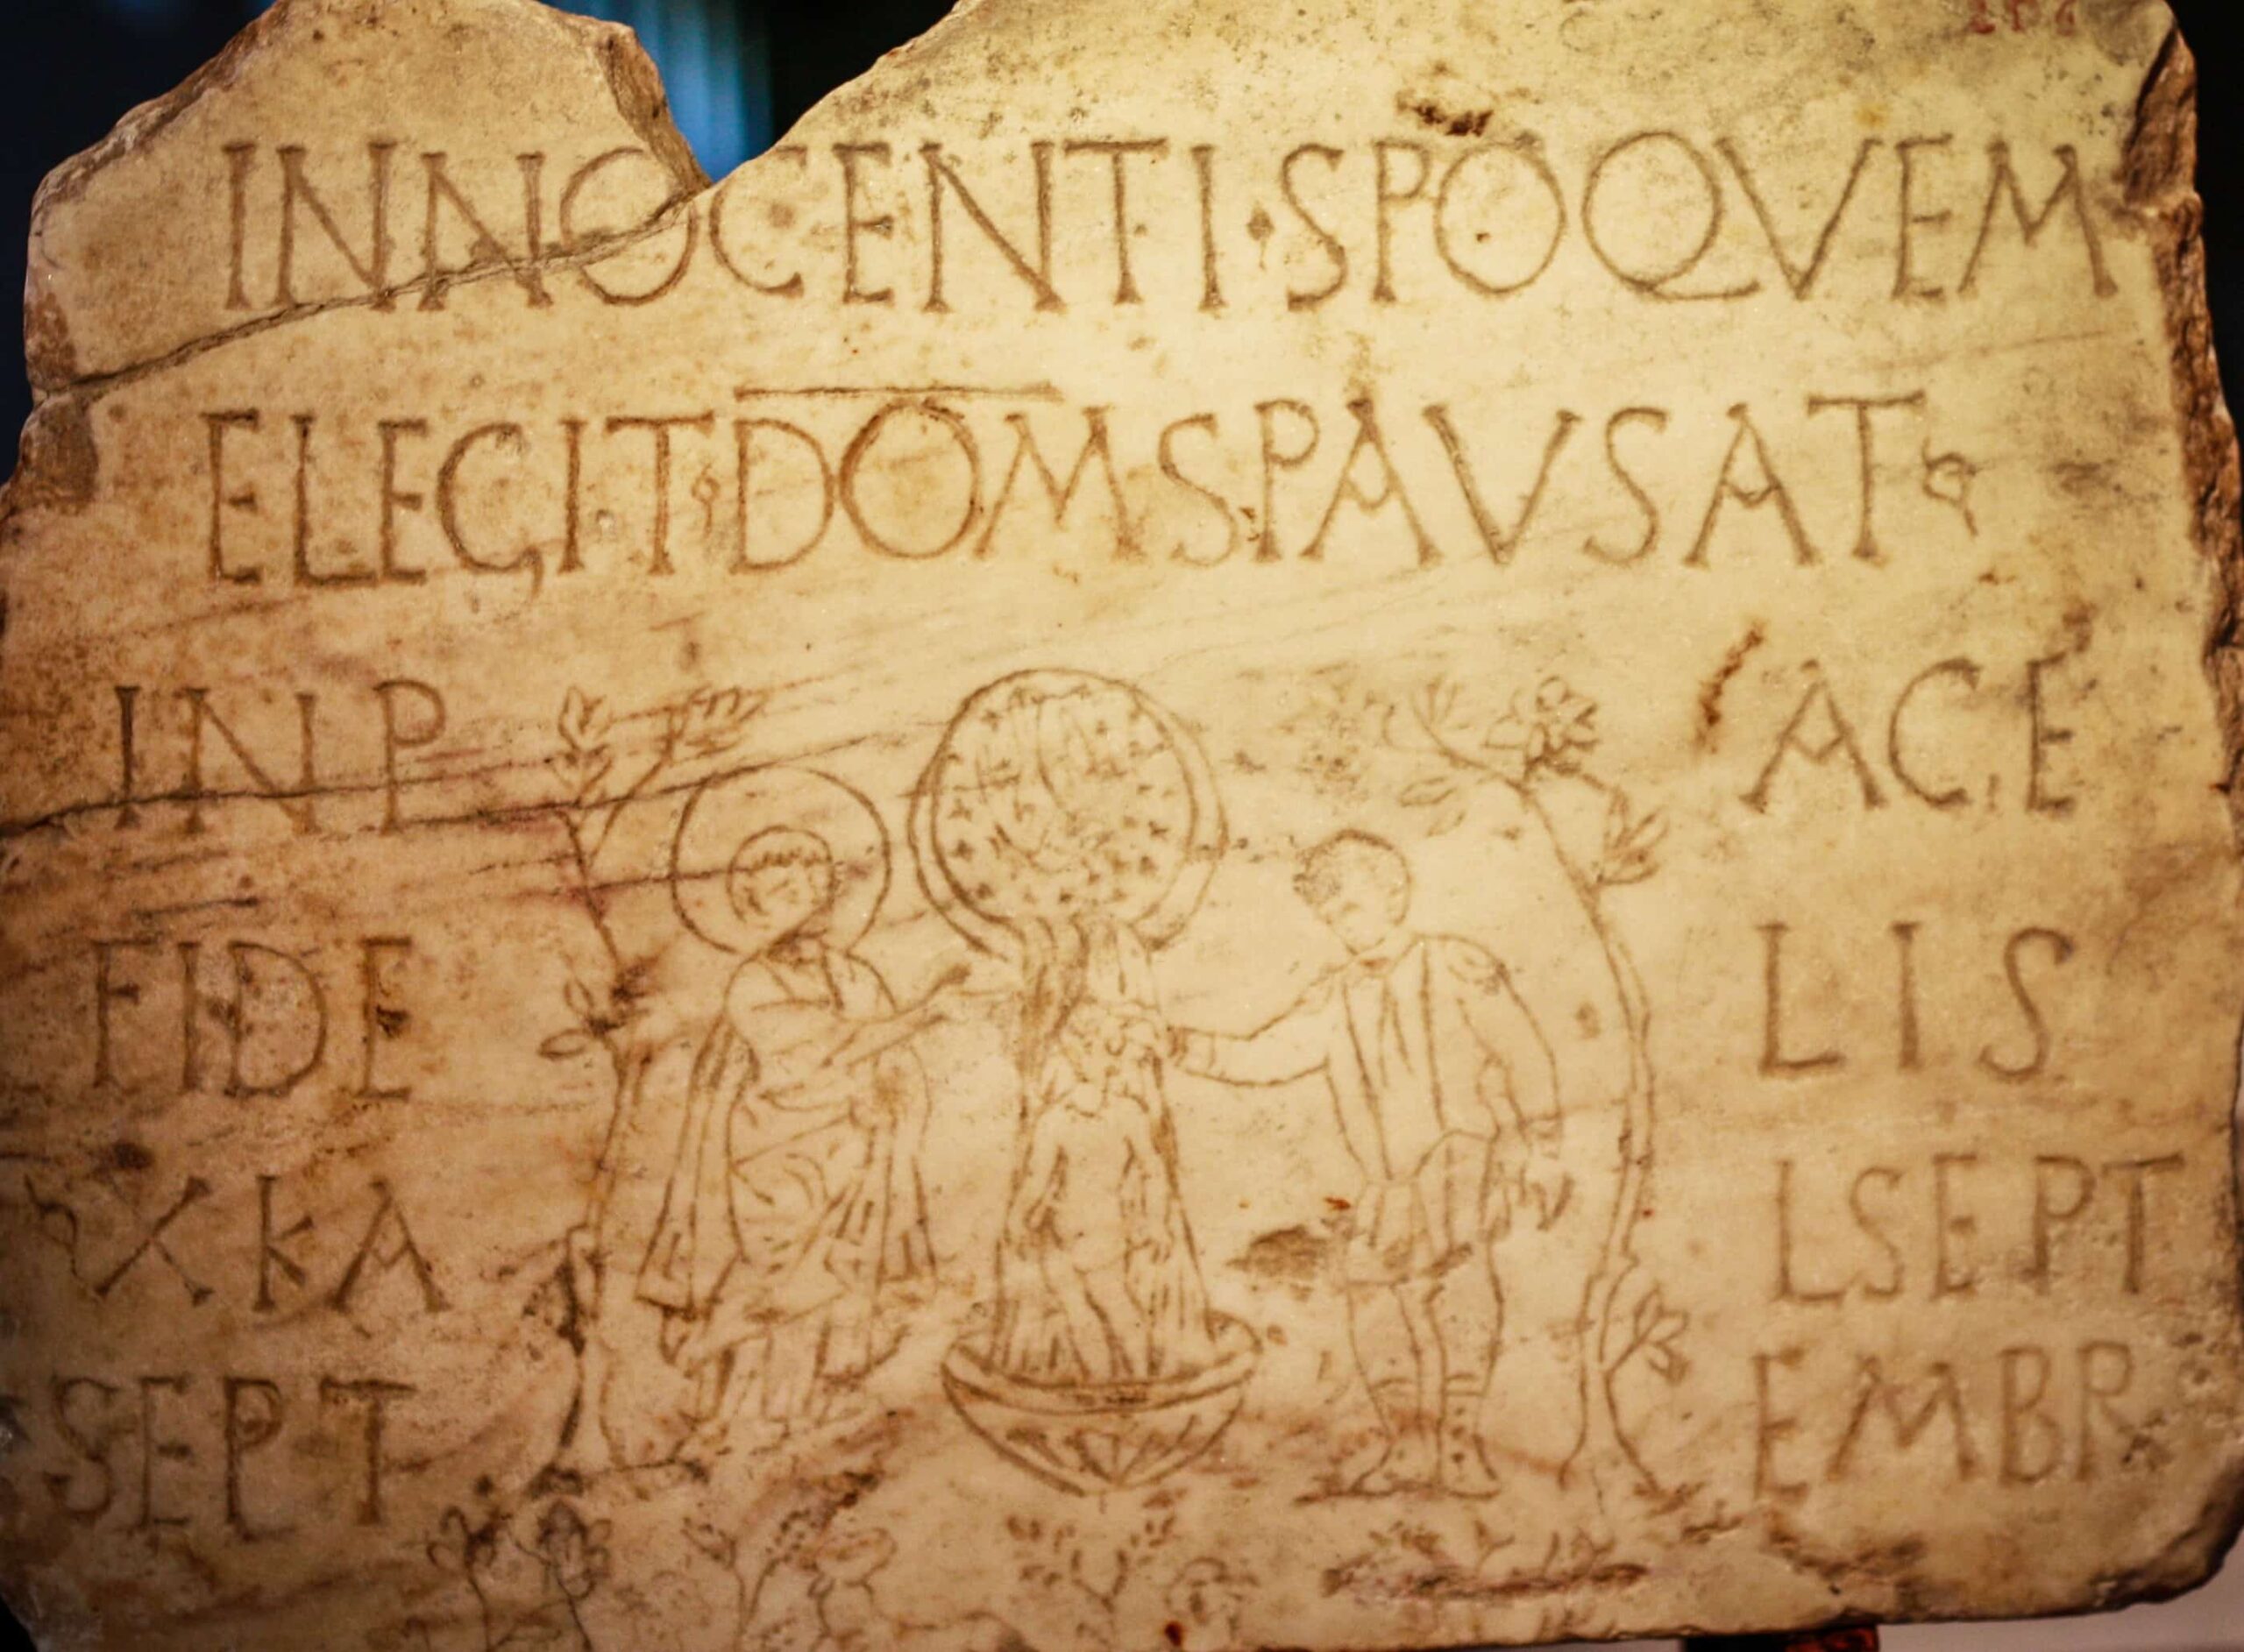 INNOCENTI·SPOQVEM
ELEGIT·DOMS·PAVSAT
IN P ACE
FIDE LIS
X KA LSEPT
SEPT EMBR